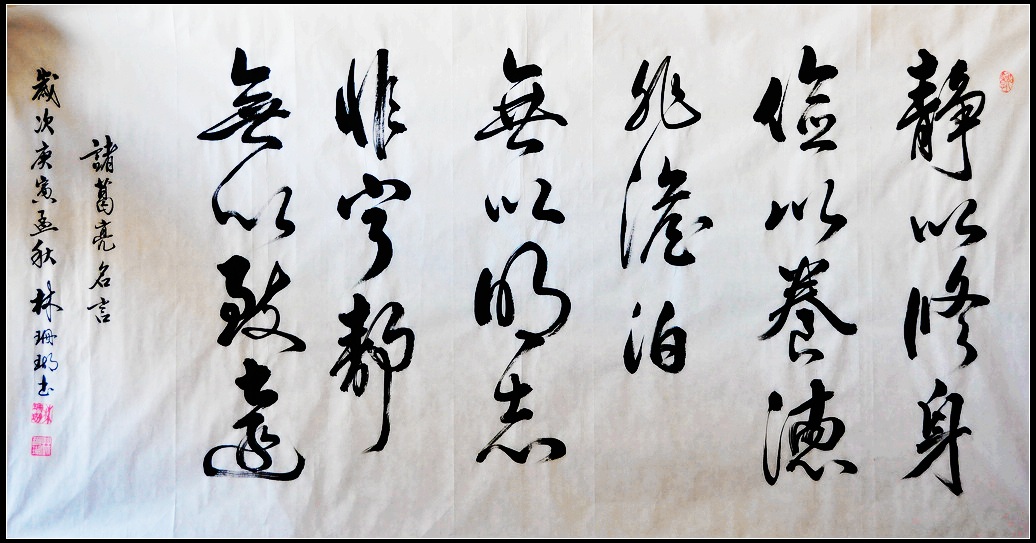 靜以修身
儉以養德
非澹泊
無以明志
非寧靜
無以致遠
諸葛亮名言
歲次庚寅孟秋 林珊瑚書